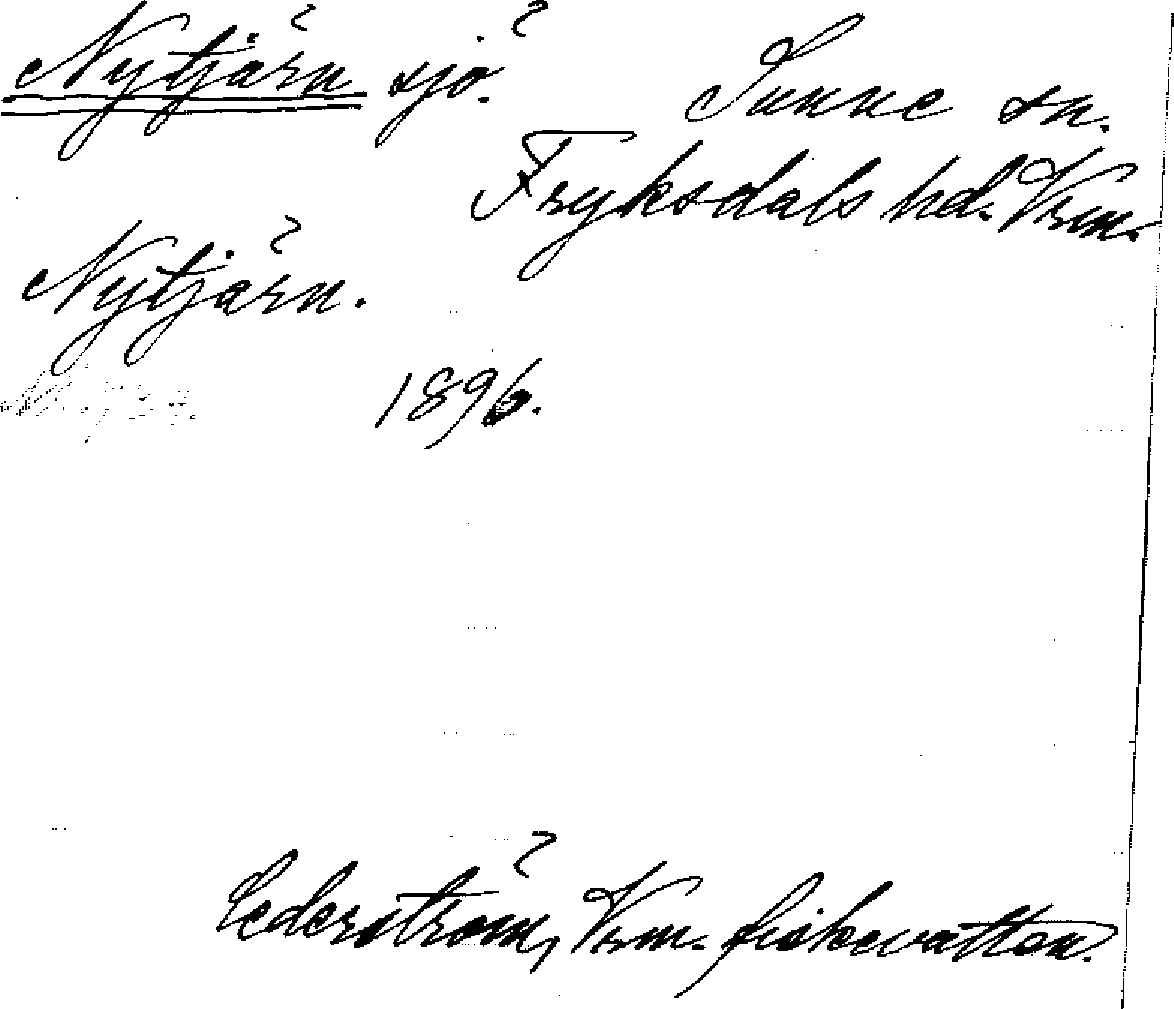 Nytjärn sjö. Sunne sn.
Fryksdals hd. Vrm.
Nytjärn.
1896.
Cederström, Vrm. fiskevatten.